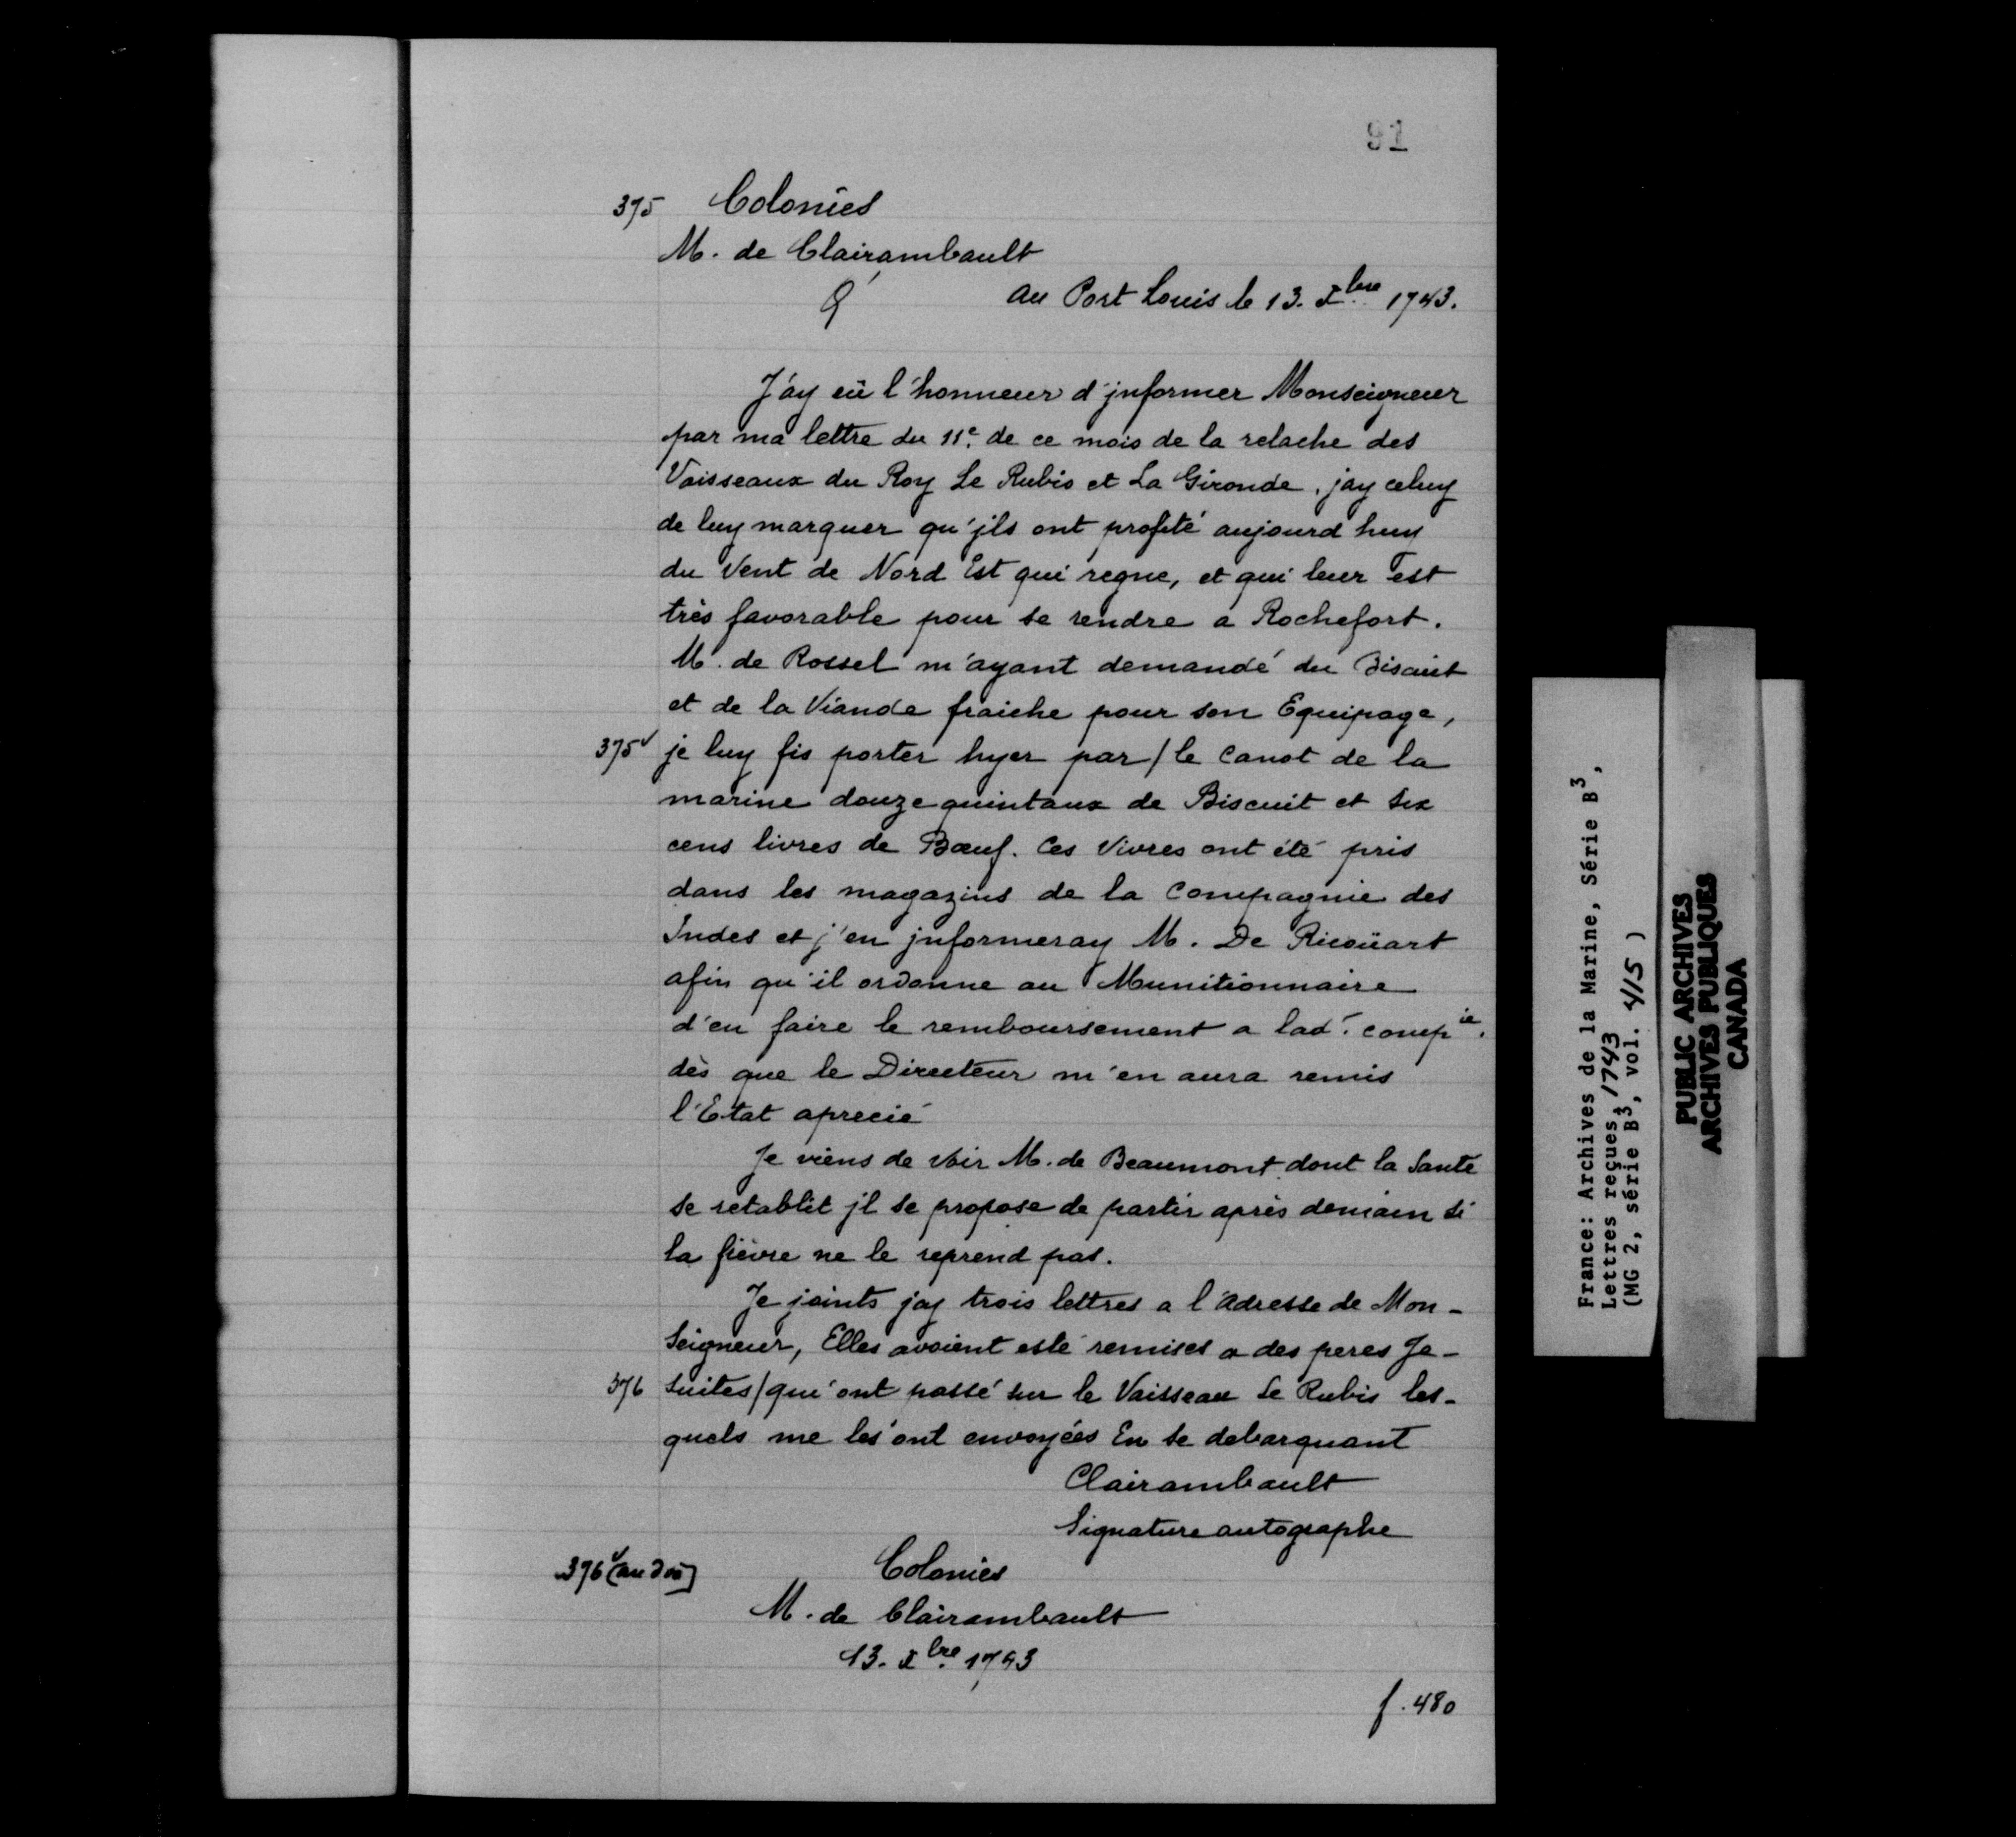 91
375 Colonies
M. de Clairambault
au Port Louis le 13. Xbre 1743.
J'ay eû l'honneur d'jnformer Monseigneur
par ma lettre du 11e. de ce mois de la relache des
Vaisseaux du Roy Le Rubis et La Gironde, jay celuy
de luy marquer qu'jls ont profité aujourd huy
du Vent de Nord Est qui regne, et qui leur Est
très favorable pour se rendre a Rochefort.
M. de Rossel m'ayant demandé du Biscuit
et de la Viande fraiche pour son Equipage,
375v je luy fis porter hyer par / le Canot de la
marine douze quintaux de Biscuit et six
cens livres de Bœuf. Ces Vivres ont été pris
dans les magazins de la Compagnie des
Indes et j'en jnformeray M. De Ricoüart
afin qu'il ordonne au Munitionnaire
d'en faire le remboursement a lad. compie.
dès que le Directeur m'en aura remis
l'Etat aprecié
Je viens de voir M. de Beaumont dont la Santé
se retablit jl se propose de partir après demain si
la fièvre ne le reprend pas.
Je joints jcy trois lettres a l'adresse de Mon-
seigneur, Elles avoient esté remises a des peres Je-
376 suites / qui ont passé sur le Vaisseau Le Rubis les-
quels me les ont envoyées En se debarquant
Clairambault
Signature autographe
376v (au dos]
Colonies
M. de Clairambault
13. Xbre 1743
f. 480
France: Archives de la Marine, Série B3,
Lettres reçues, 1743
(MG 2, série B3, vol. 415 )
PUBLIC ARCHIVES
ARCHIVES PUBLIQUES
CANADA